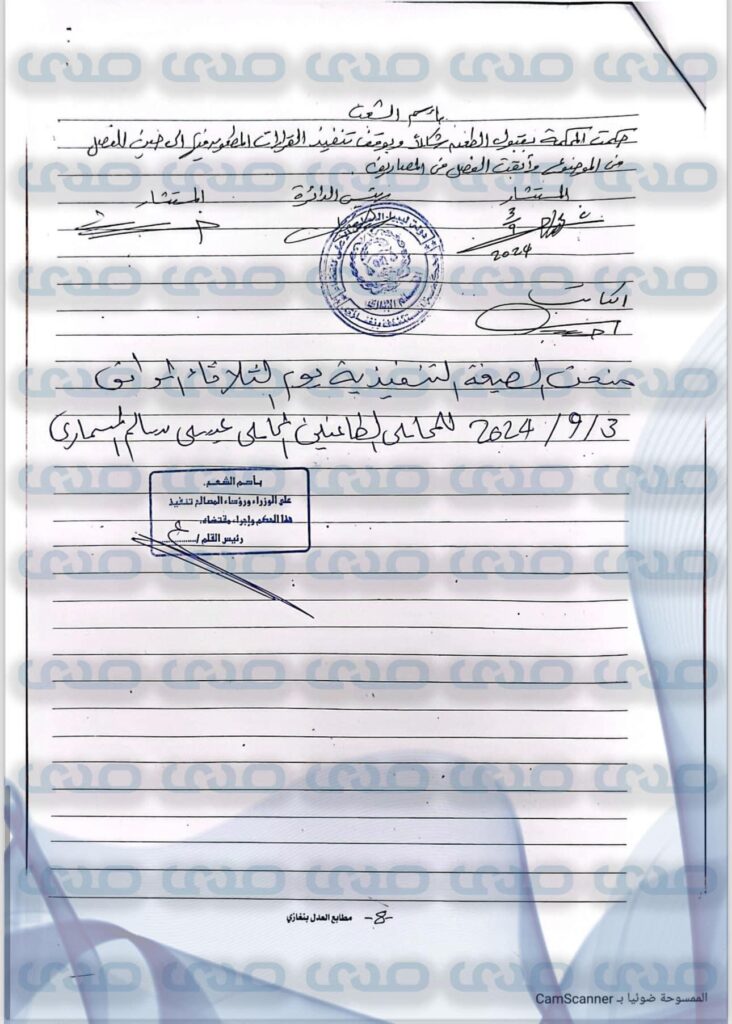 بأسم الشعب
حكمت المحكمة بقبول الطعن شكلاً وبوقف تنفيذ القرارات المطعون فيها إلى حين الفصل
من الموضوع وأبقت الفصل من المصاريف.
المستشار رئيس الدائرة المستشار
3
9
2024
الكاتب
منحت الصيغة التنفيذية يوم الثلاثاء الموافق
2024/9/3 للمحامى الطاعنين المحامى عيسى سالم المسماري
بأسم الشعب.
على الوزراء ورؤساء المصالح تنفيذ
هذا الحكم وإجراء مقتضاه.
رئيس القلم/
-8- مطابع العدل بنغازي
الممسوحة ضوئيا بـ CamScanner
صدى